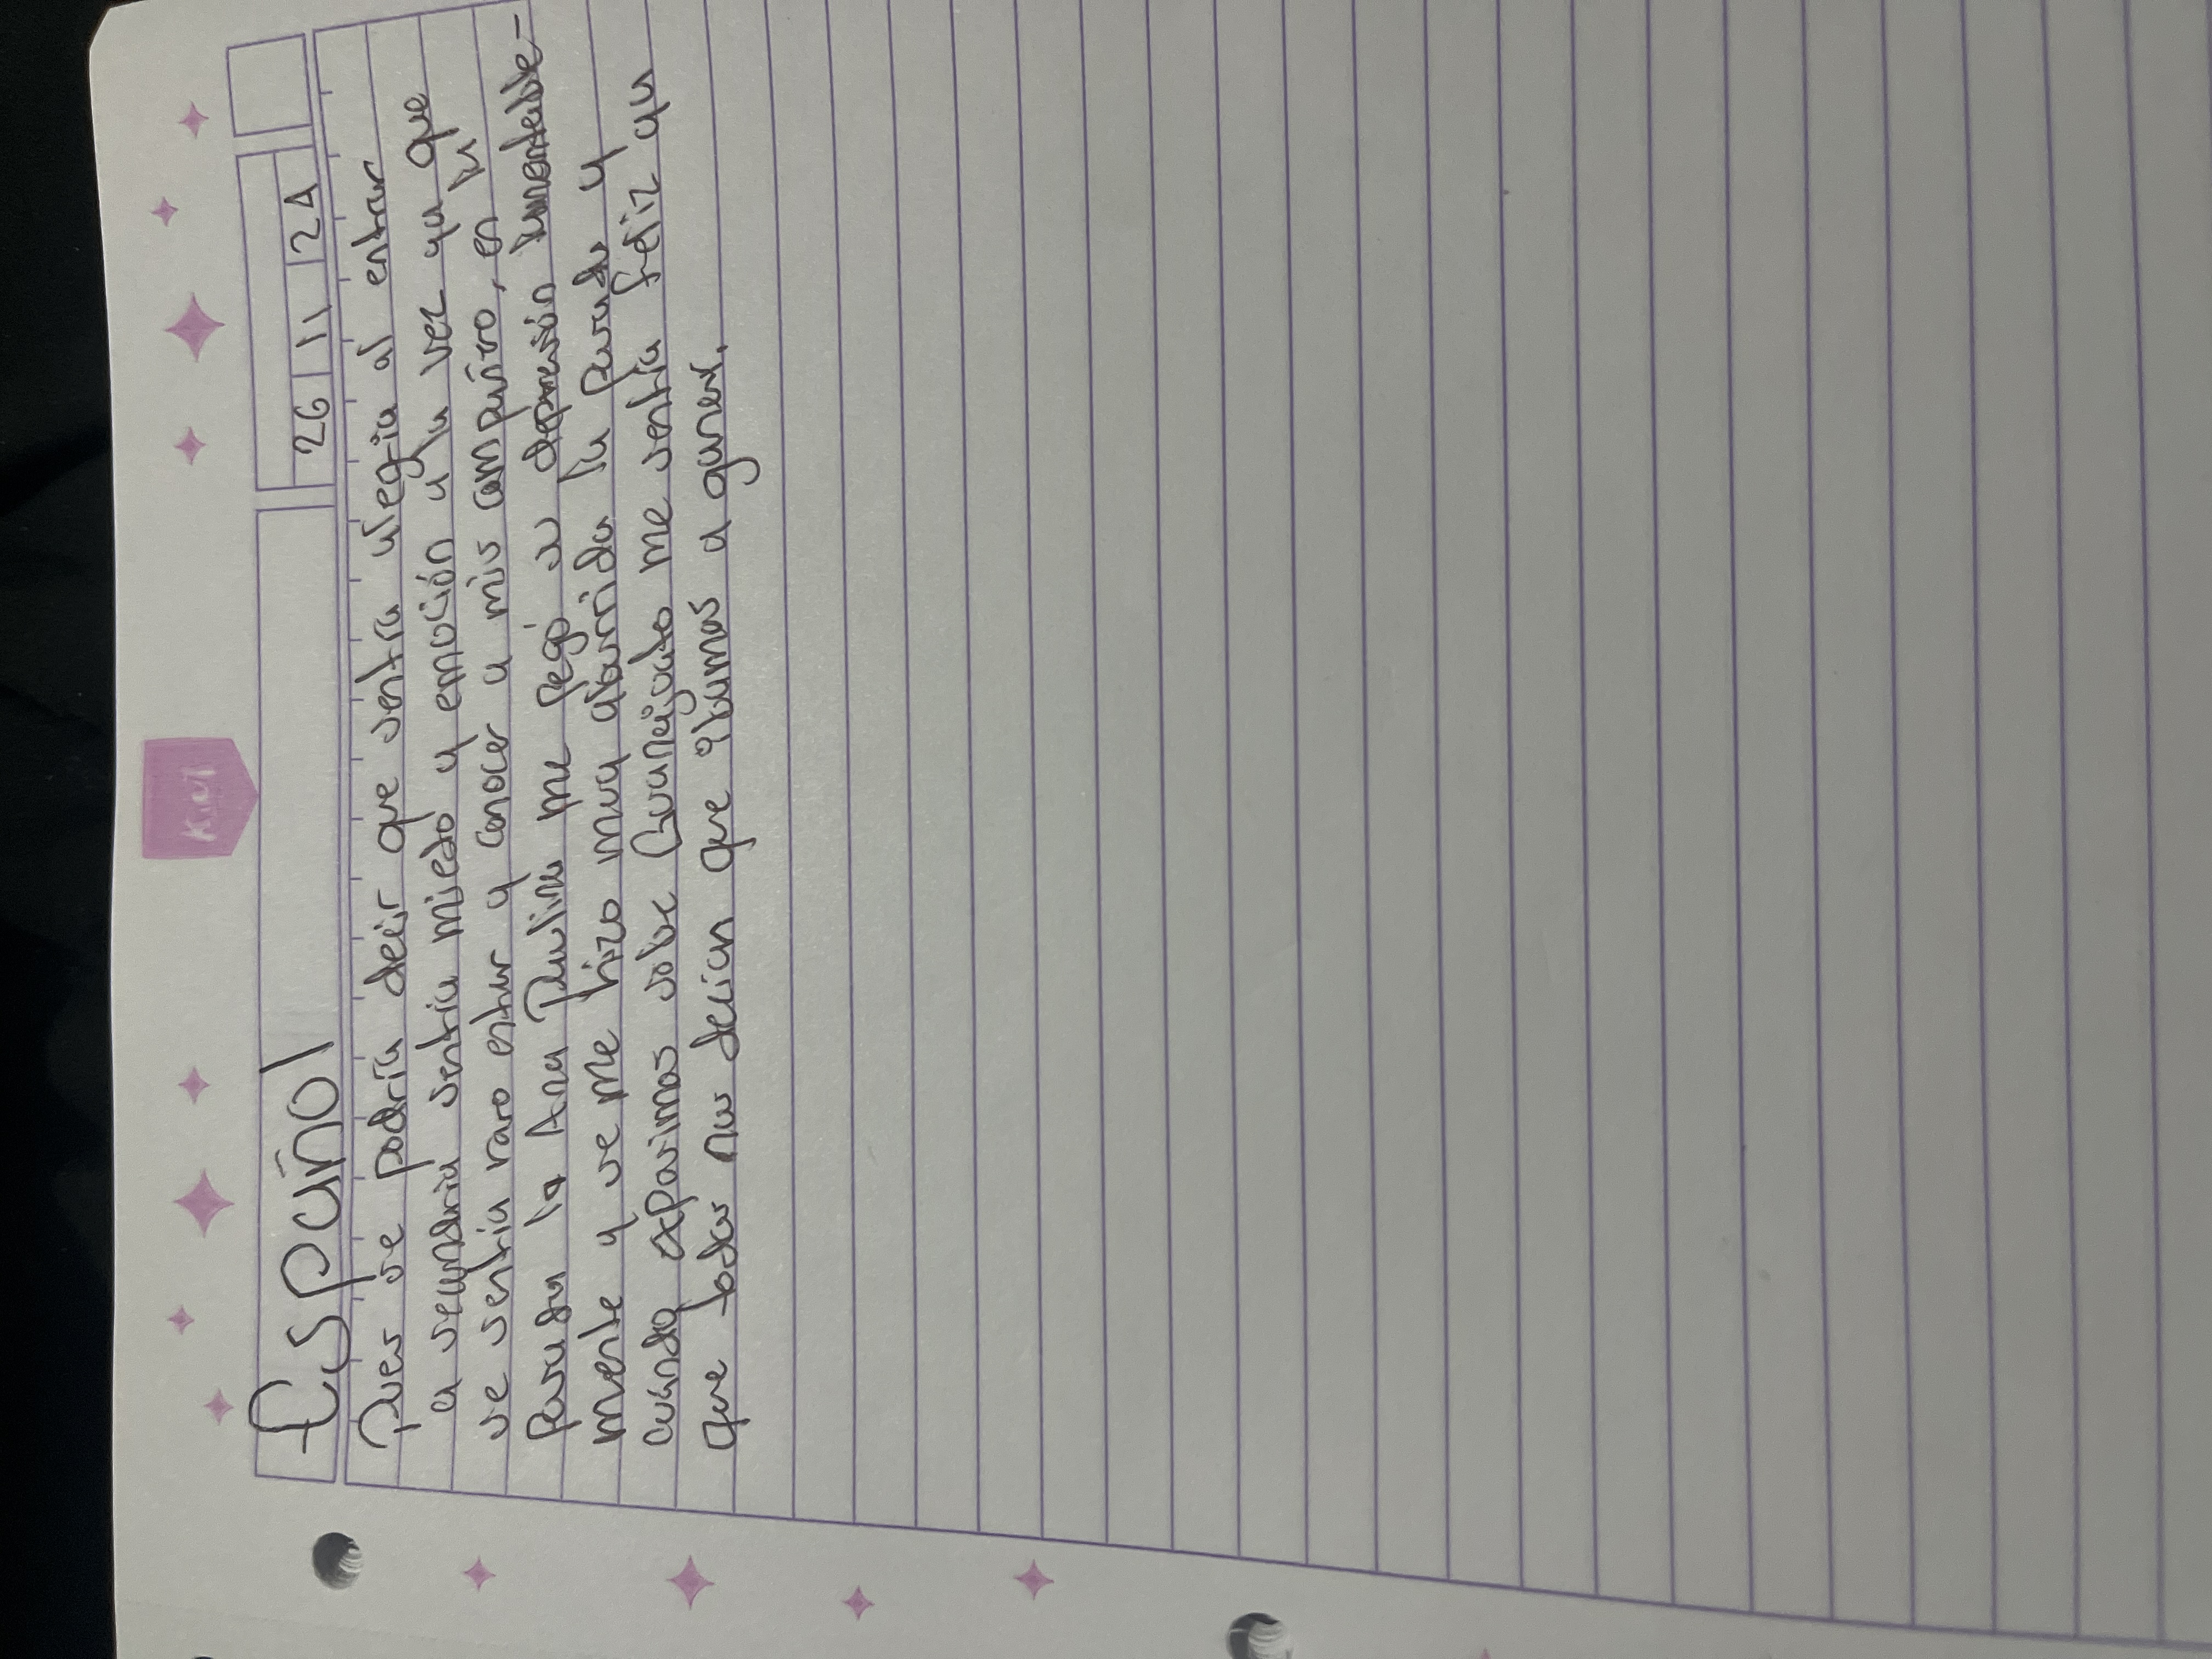 Kiut
Español
26 11 24
Pues se podría decir que sentía alegria al entrar
a secundria sentia miedo y emoción a la vez ya que
se sentia raro entrar y conocer a mis compañro, en la
Parada la Ana Paulina me pegó su depresión lamentable-
mente y se me hizo muy aburrida la parada y
cuando expusimos sobre Guanajuato me sentía feliz ya
que todos nos decían que ibamos a ganar.